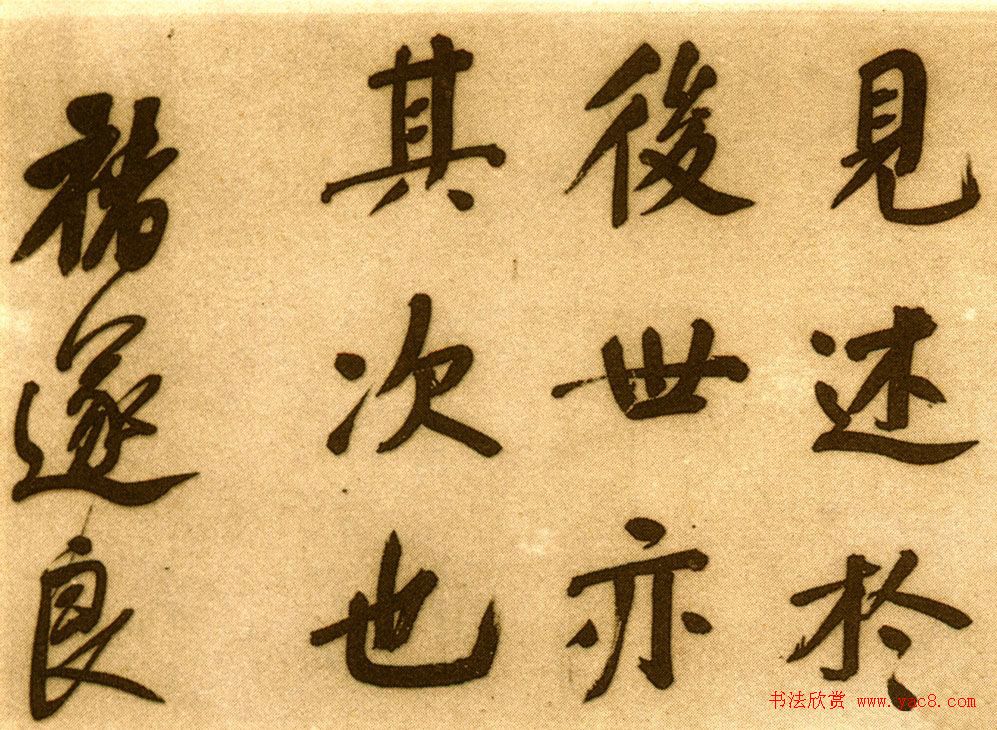 見述於
後世亦
其次也
褚遂良
书法欣赏 www.yac8.com